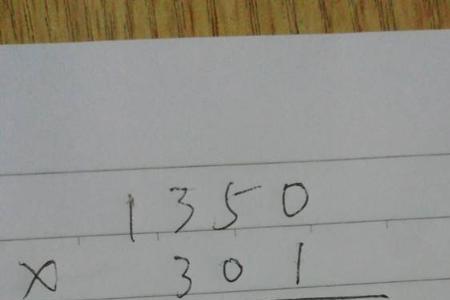 1350
× 301